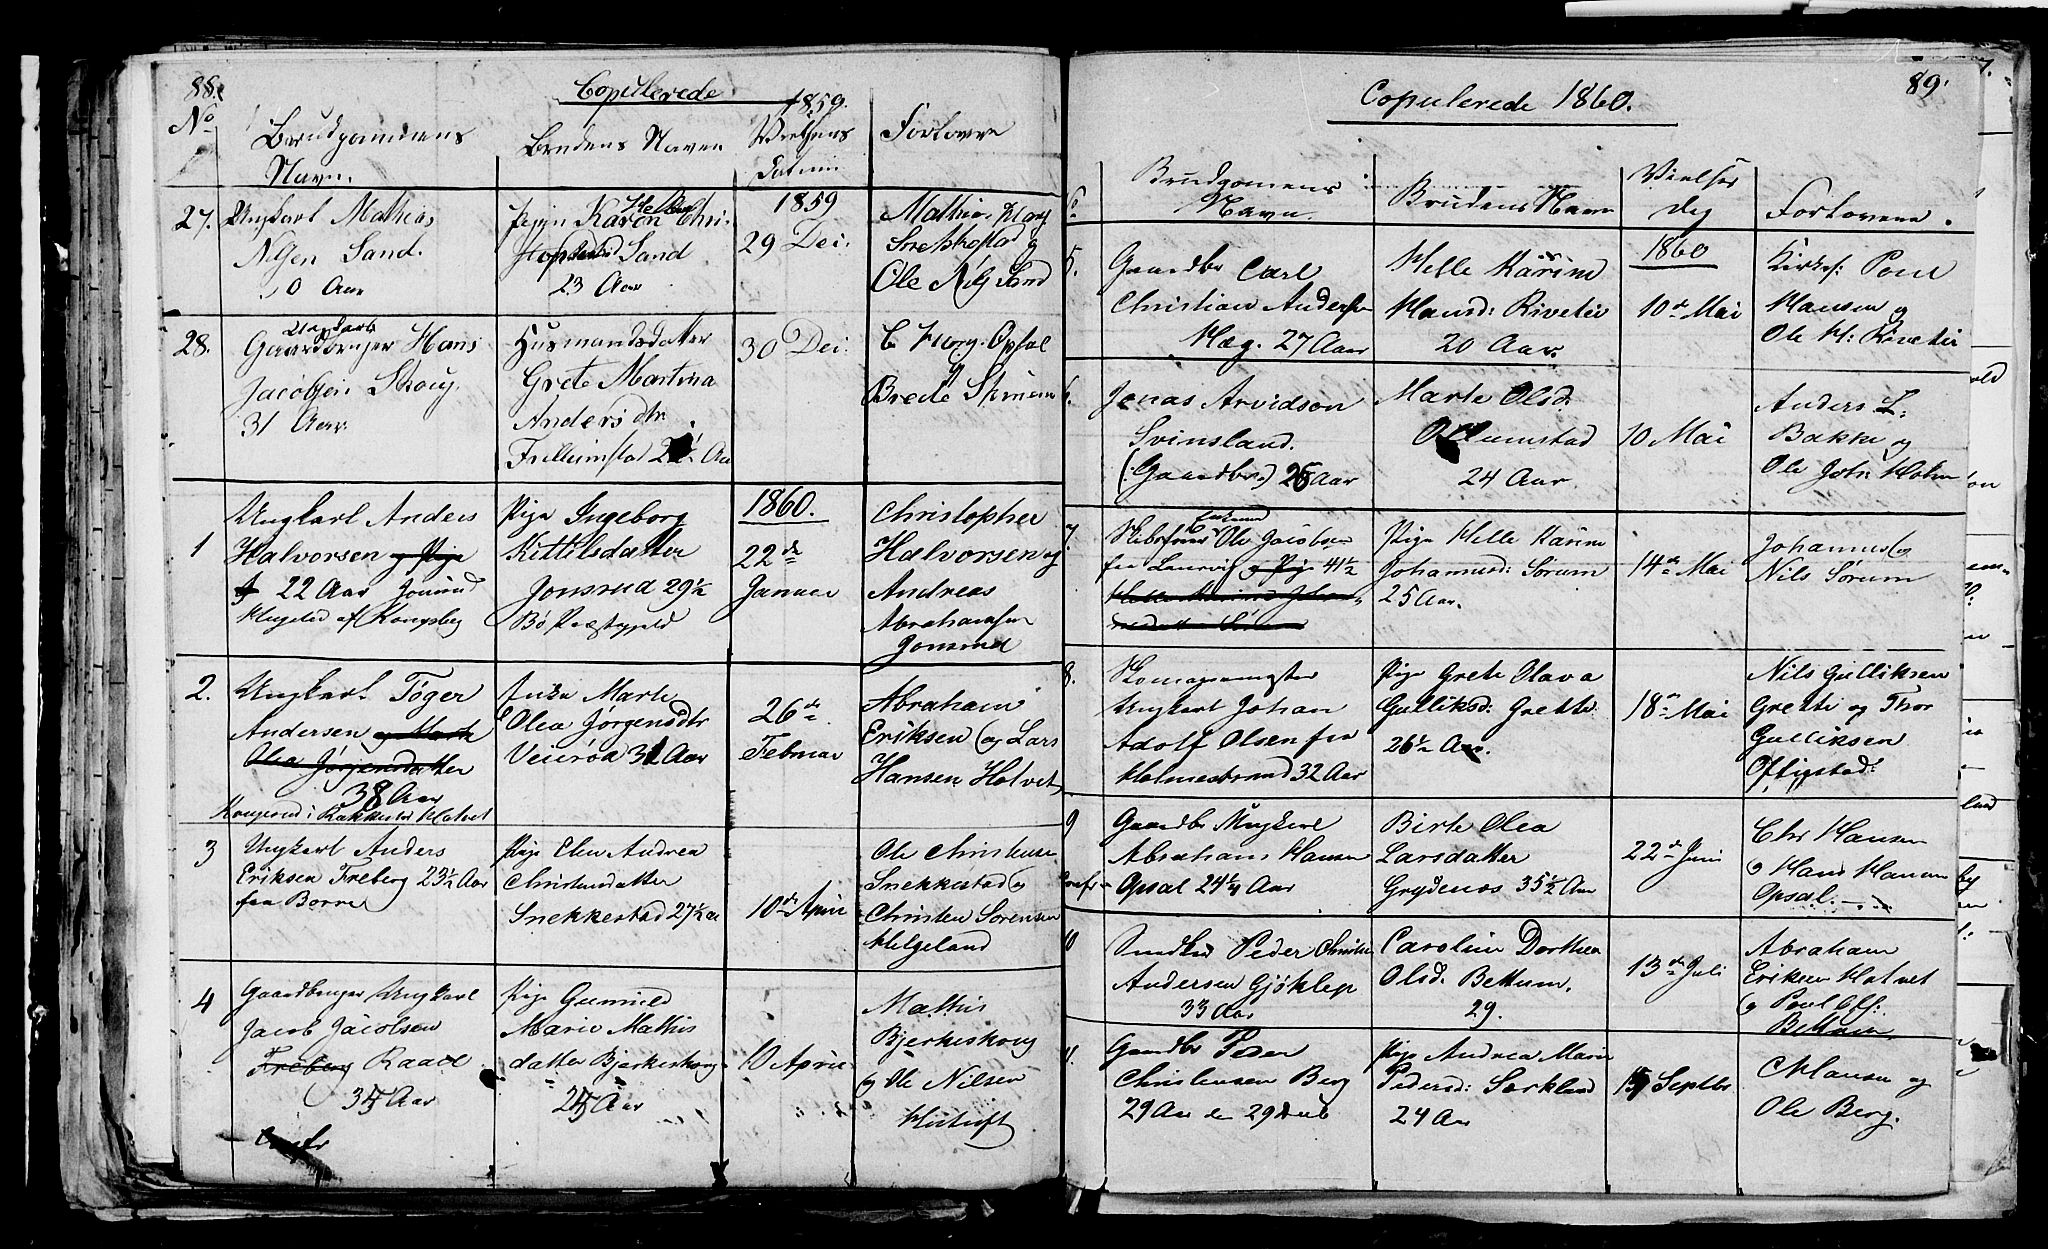 88.
Copulerede
1859.
No
Brudgommens
Navn.
Brudens Navn
Vielsens
Datum
Forlovere
27. Ungkarl Mathias
Nilsen Sand.
0 Aar
Pigen Karen Chri-
Helene
Sand
23 Aar
1859
29 Dec.
Mathias
Snekkestad og
Ole Nils. Sand
28.
Ungkarl
Gaardbruger Hans
Jacobsen Skoug.
31 Aar
Husmandsdatter
Grete Martina
Anders dtr.
Aar
30 Dec.
C Opsal
og
Brede
1
Ungkarl Anders
Halvorsen og Pige
22 Aar Jonsrud
af Kongsberg
Pige Ingeborg
Kittilsdatter
Jonsrud 29½
Bø Præstegjeld
1860.
22de
Januar
Christopher
Halvorsen og
Andreas
Abrahamsen
Jonsrud
2.
Ungkarl Tøger
Andersen og Marte
Olea Jørgensdatter
38 Aar
i Hatvet
Marte
Olea Jørgensdtr
Aar
26de
Februar
Abraham
Eriksen og Lars
Hansen Hatvet
3
Ungkarl Anders
Eriksen Freberg 23½ Aar
fra Borre
Pige Elen Andrea
Christensdatter
Snekkestad 27½ A
10de April
Ole Christensen
Snekkestad og
Christen Sørensen
Helgeland
4
Gaardbruger Ungkarl
Jacob Jacobsen
Freberg Raael
35 Aar
Pige Gunnild
Marie Mathis
datter Bjerkeskoug
25 Aar
10 April
Mathis
Bjerkeskoug
og Ole Nilsen
89.
Copulerede 1860.
Brudgomens
Navn.
Brudens Navn
Vielses
dag
Forlovere.
5.
Gaardbr Carl
Christian Andersen
Hæg. 27 Aar
Helle Karine
Hansd: Rivetie
20 Aar.
1860
10de Mai
Kirkes: Poul
Hansen og
Ole H: Rivetie
6.
Jonas Arvidson
Svinsland.
(Gaardbr.) 26 Aar
Marte Olsd.
24 Aar
10 Mai
Anders L:
Bakke og
Ole Joh: Holm
7.
Ole Jacobsen
fra Laurvig og Pige 41½
Pige Helle Karine
Johannesd: Sørum
25 Aar.
14de Mai
Johannes og
Nils Sørum
8.
Skomagermester
Ungkarl Johan
Adolf Olsen fra
Holmestrand 32 Aar
Pige Grete Olava
Gulliksd: Grette
26½ Aar.
18de Mai
Nils Gulliksen
Grette og Thor
Gulliksen
Oftigstad:
9
Gaardbr Ungkarl
Abraham Hansen
Opsal 24¼ Aar
Birte Olea
Larsdatter
Grydenos 35½ Aar
22de Juni
Chr Hansen
og Hans Hansen
Opsal.
10
Peder Christian
Andersen Gjøklep
33 Aar
Caroline Dorthea
Olsd. Bettum.
29.
13de Juli
Abraham
Eriksen Hatvet
og Poul
Bettum
11.
Gaardbr Peder
Christensen Berg
29 Aar
Pige Andrea Marie
Pedersd:
24 Aar
Septbr
C Hansen og
Ole Berg.